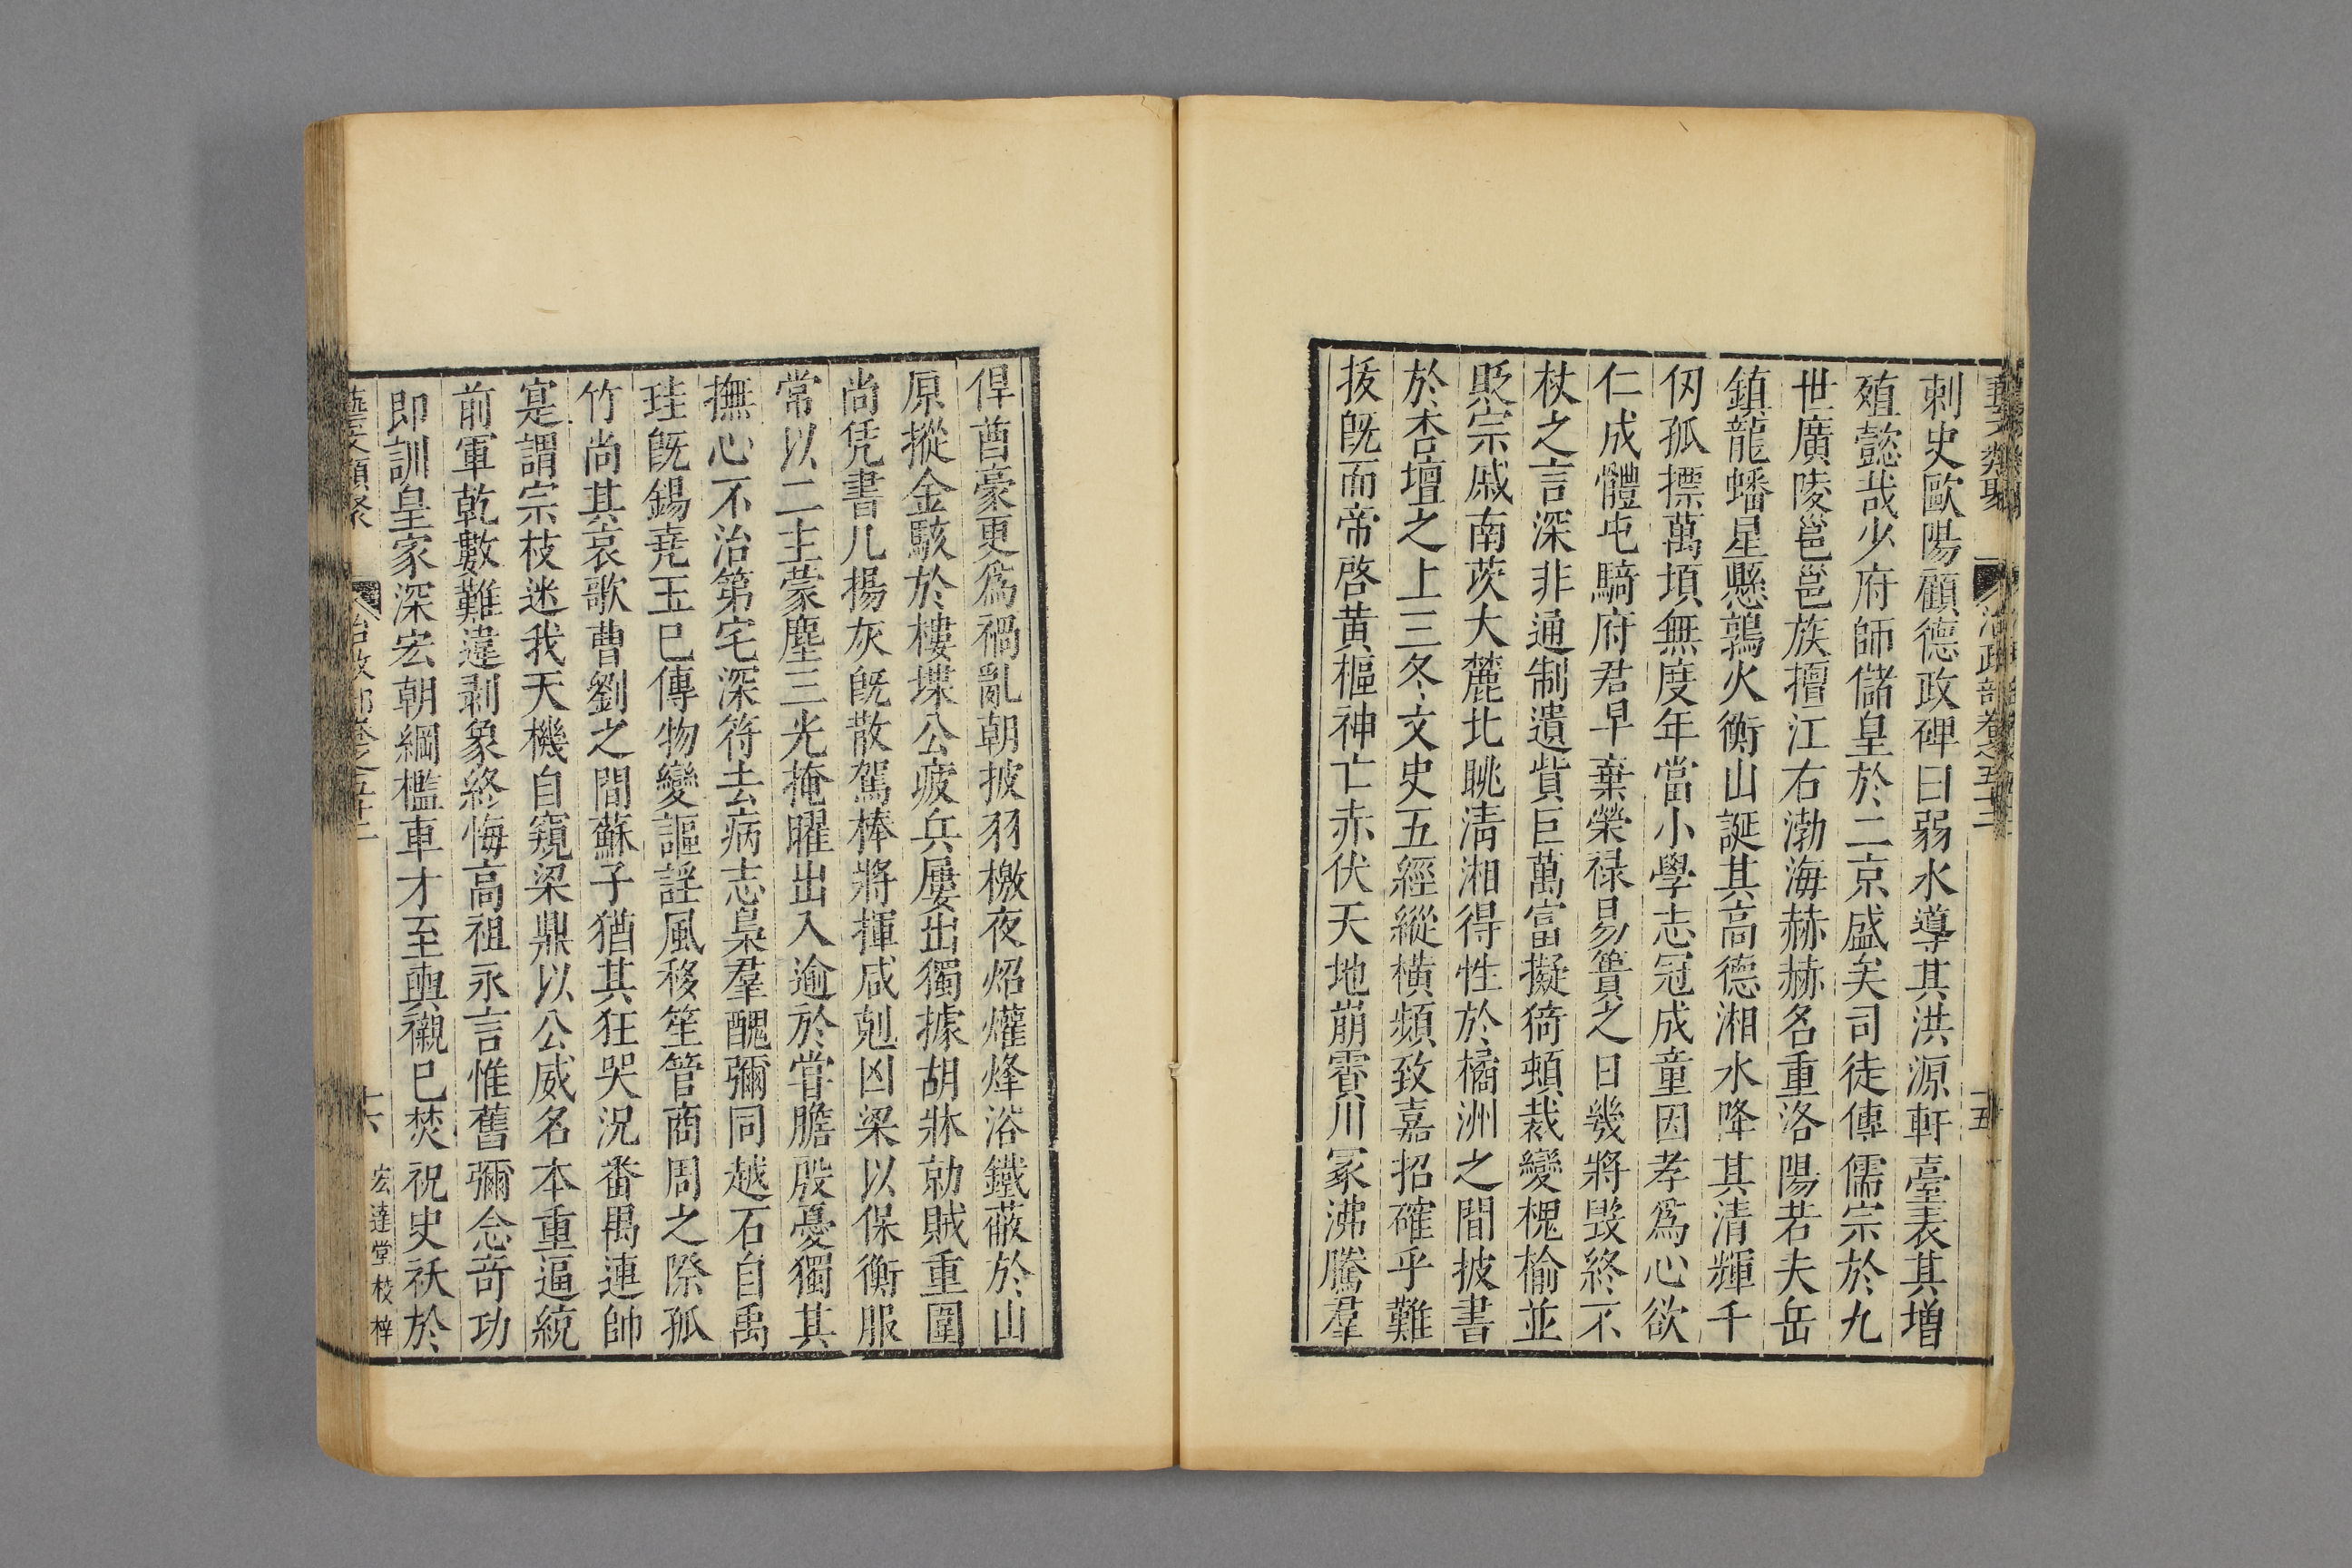 刺史歐陽頠德政碑曰弱水導其洪源軒臺表其增
殖懿哉少府師儲皇於二京盛矣司徒傳儒宗於九
世廣陵邕邕族擅江右渤海赫赫名重洛陽若夫岳
鎮龍蟠星懸鶉火衡山誕其高德湘水降其清輝千
仞孤摽萬頃無度年當小學志冠成童因孝爲心欲
仁成體屯騎府君早棄榮祿易簀之日幾將毀終不
杖之言深非通制遺貲巨萬富擬猗頓裁變槐榆並
貺宗戚南茨大麓北眺淸湘得性於橘洲之間披書
於杏壇之上三冬文史五經縱橫頻致嘉招確乎難
拔旣而帝啓黄樞神亡赤伏天地崩霣川冢沸騰羣
悍酋豪更爲禍亂朝披羽檄夜炤爟烽浴鐵蔽於山
原摐金駭於樓堞公疲兵屢出獨據胡牀勍賊重圍
尚凭書几揚灰旣散駕棒將揮咸剋凶梁以保衡服
常以二主蒙塵三光掩曜出入逾於嘗膽殷憂獨其
撫心不治第宅深符去病志梟羣醜彌同越石自禹
珪旣錫堯玉已傳物變謳謠風移笙管商周之際孤
竹尚其哀歌曹劉之間蘇子猶其狂哭況番禺連帥
寔謂宗枝迷我天機自窺梁鼎以公威名本重逼統
前軍乾數難違剥象終悔高祖永言惟舊彌念奇功
即訓皇家深宏朝綱檻車才至輿櫬已焚祝史祅於
藝文類聚 治政部卷之五十二 十六 宏達堂校梓